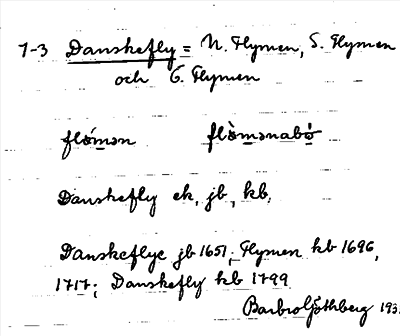 1-3 Danskefly = N. Flymen, S. Flymen
och G. Flymen
flómǝn flòmǝnabò
Danskefly ek, jb, kb.
Danskeflye jb 1651; Flymen kb 1696,
1717; Danskefly kb 1799
Barbro Göthberg 193